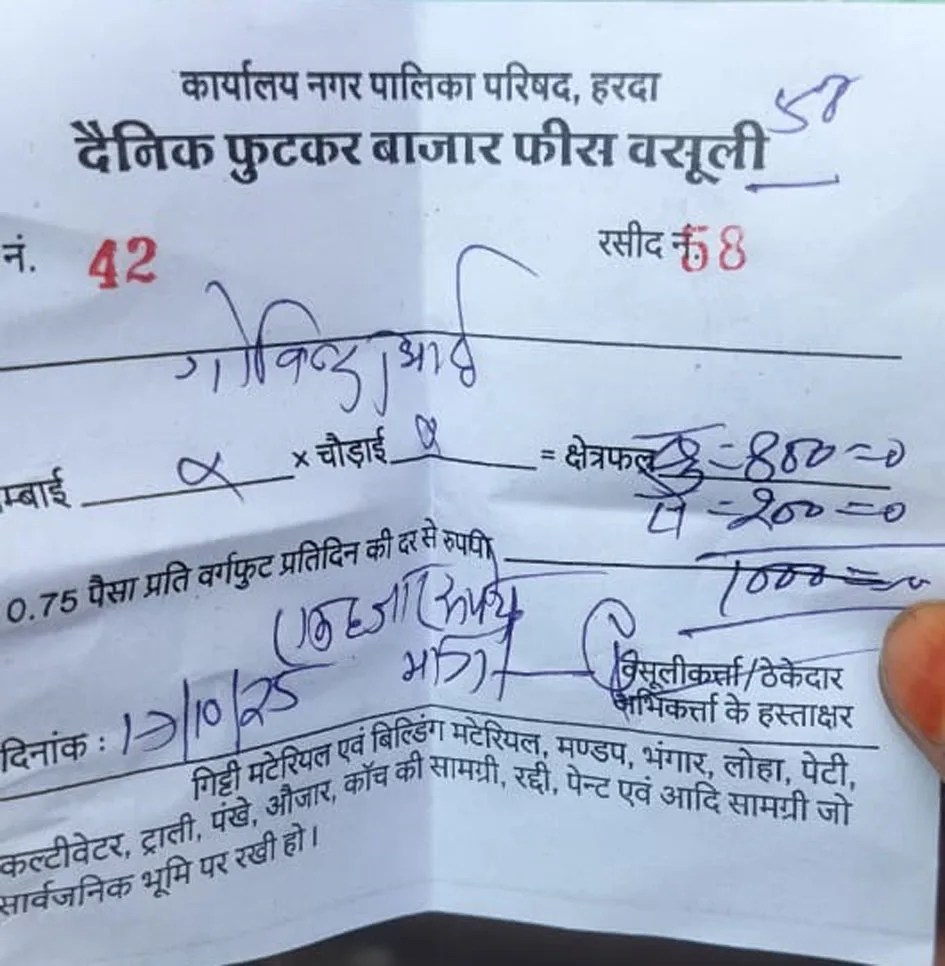 कार्यालय नगर पालिका परिषद, हरदा
58
दैनिक फुटकर बाजार फीस वसूली
नं. 42 रसीद नं. 58
गोविन्द भाई
म्बाई × चौड़ाई = क्षेत्रफल = 800=0
= 200=0
0.75 पैसा प्रति वर्गफुट प्रतिदिन की दर से रुपये 1000=0
एक हजार रूपये
मात्र वसूलीकर्त्ता/ठेकेदार
दिनांक : 17/10/25 अभिकर्त्ता के हस्ताक्षर
गिट्टी मटेरियल एवं बिल्डिंग मटेरियल, मण्डप, भंगार, लोहा, पेटी,
कल्टीवेटर, ट्राली, पंखे, औजार, कॉच की सामग्री, रद्दी, पेन्ट एवं आदि सामग्री जो
सार्वजनिक भूमि पर रखी हो।